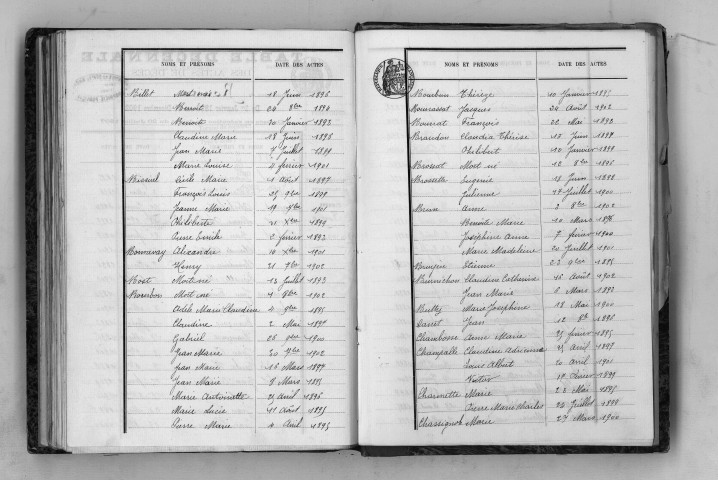 NOMS ET PRÉNOMS DATE DES ACTES
Billet Mort né 18 Juin 1896
Benoît 1894
Benoit 20 Janvier 1893
Claudine Marie 18 Juin 1896
Jean Marie 7 Juillet 1899
Marie Louise 4 février 1901
Bissuel Marie 1 Août 1897
François Louis 25 9bre 1899
Jeanne Marie 19 Xbre 1901
Philiberte 21 Xbre 1899
Pierre Emile 2 février 1893
Bonnevay Alexandre 10 Xbre 1901
Henry 21 9bre 1902
Bost Mort né 13 Juillet 1893
Bourbon Mort né 4 8bre 1902
Adèle Marie Claudine 4 9bre 1895
Claudine 2 Mai 1897
Gabriel 26 1900
Jean Marie 30 1902
Jean Marie 16 Mars 1897
Jean Marie 8 Mars 1895
Marie Antoinette 25 Avril 1896
Marie Lucie 11 Août 1895
Pierre Marie 4 Avril 1895
NOMS ET PRÉNOMS DATE DES ACTES
Bourbon Thérèze 10 Janvier 1895
Jacques 24 Août 1902
Bourrat François 22 Mai 1893
Brandon Claudia Thérèse 17 Juin 1899
Philibert 10 Janvier 1899
Brossat Mort né 12 8bre 1895
Brossette Eugénie 18 Juin 1898
Julienne 24 Juillet 1900
Brun Anne 2 8bre 1902
Benoite Marie 10 Mars 1896
Joséphine Anne 7 février 1900
Marie Madeleine 20 Juillet 1901
Bruyère Etienne 23 9bre 1895
Claudine Catherine 16 Août 1902
Jean Marie 6 Mars 1893
Bully Marie Joséphine 18 Mai 1900
Jean 12 8bre 1898
Chambosse Anne Marie 25 février 1895
Champalle Claudine 25 Avril 1897
Louis Albert 20 Avril 1901
Victor 19 février 1899
Charmette Marie 23 Mai 1895
Pierre Marie Charles 26 Juillet 1898
Chassignol Marie 27 Mars 1900